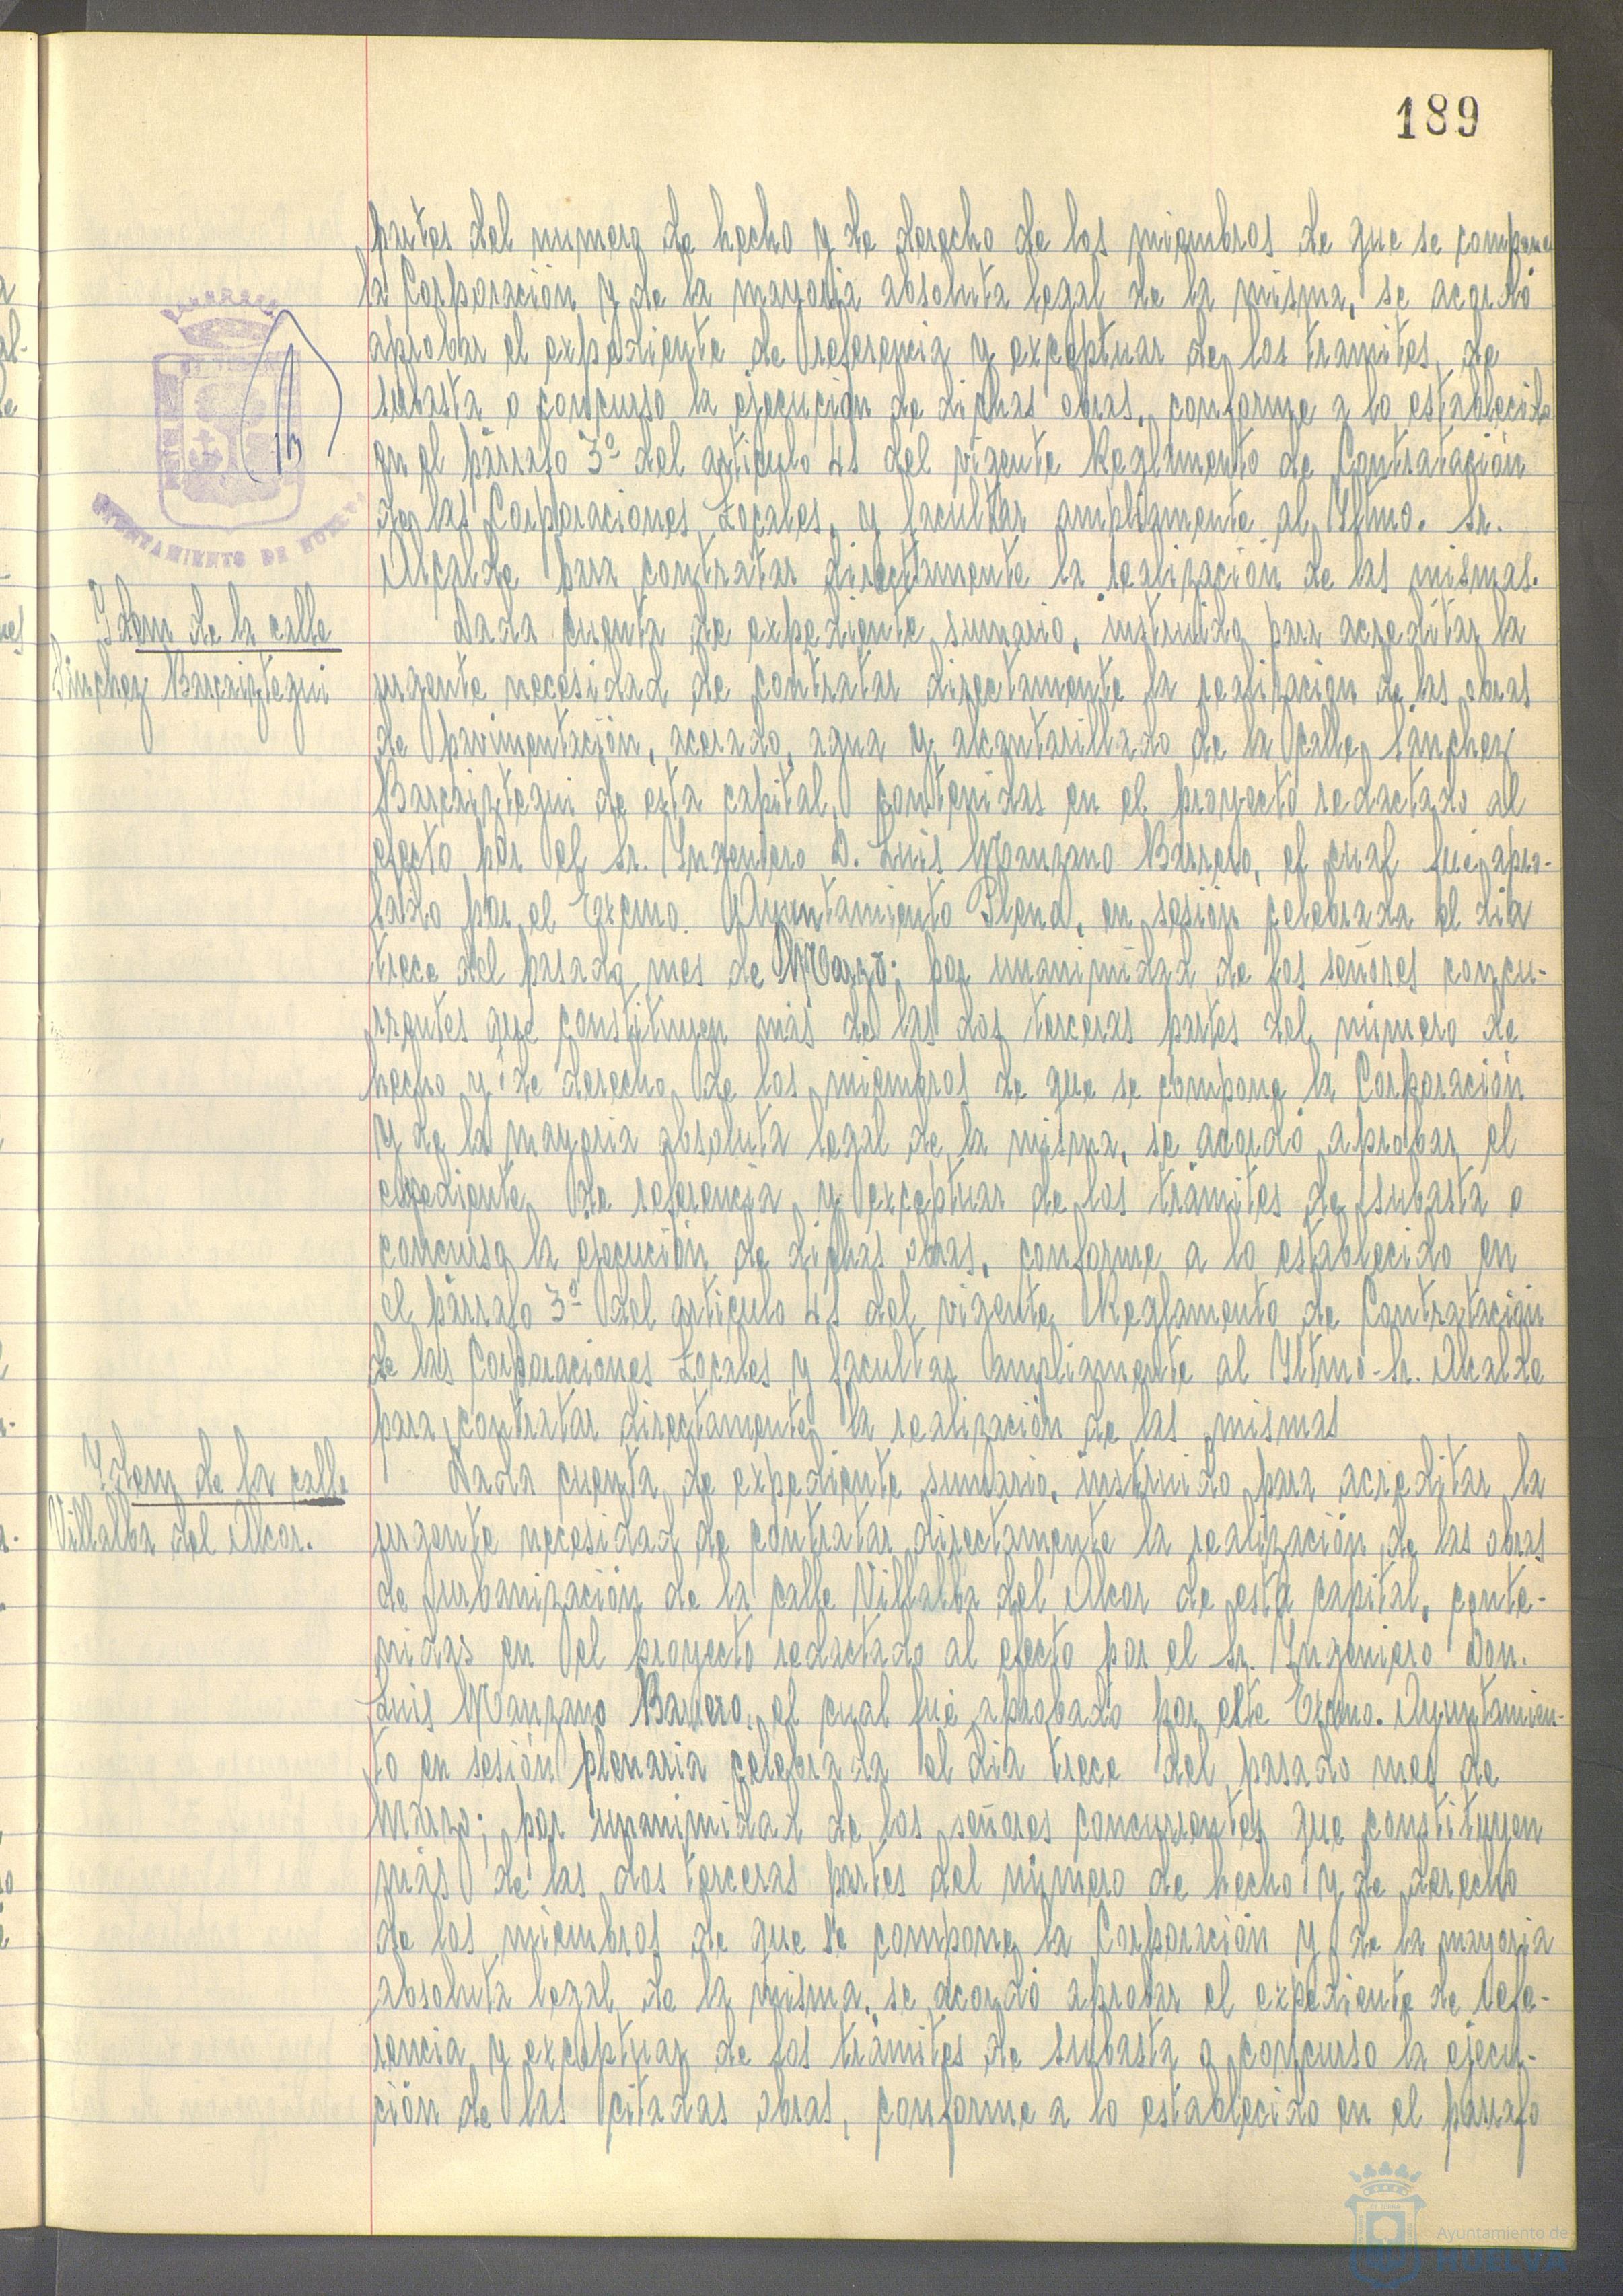 189
partes del numero de hecho y de derecho de los miembros de que se compone
la Corporación y de la mayoria absoluta legal de la misma, se acordó
aprobar el expediente de referencia y exceptuar de los tramites de
subasta o concurso la ejecución de dichas obras, conforme a lo establecido
en el párrafo 3º del articulo 41 del vigente Reglamento de Contratación
de las Corporaciones Locales, y facultar ampliamente al Iltmo. Sr.
Alcalde para contratar directamente la realización de las mismas.
AYUNTAMIENTO DE HUELVA
Idem de la calle
Sánchez Barcaiztegui
Dada cuenta de expediente sumario, instruido para acreditar la
urgente necesidad de contratar directamente la realización de las obras
de pavimentación, acerado, agua y alcantarillado de la calle Sánchez
Barcaiztegui de esta capital, contenidas en el proyecto redactado al
efecto por el Sr. Ingeniero D. Luis Manzano Barrero, el cual fué apro-
bado por el Excmo. Ayuntamiento Pleno, en sesión celebrada el día
trece del pasado mes de Marzo; por unanimidad de los señores concu-
rrentes que constituyen más de las dos terceras partes del número de
hecho y de derecho de los miembros de que se compone la Corporación
y de la mayoria absoluta legal de la misma, se acordó aprobar el
expediente de referencia y exceptuar de los trámites de subasta o
concurso la ejecución de dichas obras, conforme a lo establecido en
el párrafo 3º del articulo 41 del vigente Reglamento de Contratación
de las Corporaciones Locales y facultar ampliamente al Iltmo. Sr. Alcalde
para contratar directamente la realización de las mismas
Idem de la calle
Villalba del Alcor.
Dada cuenta de expediente sumario, instruido para acreditar la
urgente necesidad de contratar directamente la realización de las obras
de urbanización de la calle Villalba del Alcor de esta capital, conte-
nidas en el proyecto redactado al efecto por el Sr. Ingeniero Don.
Luis Manzano Barrero, el cual fué aprobado por este Excmo. Ayuntamien-
to en sesión plenaria celebrada el día trece del pasado mes de
Marzo; por unanimidad de los señores concurrentes que constituyen
más de las dos terceras partes del número de hecho y de derecho
de los miembros de que se compone la Corporación y de la mayoria
absoluta legal de la misma, se acordó aprobar el expediente de refe-
rencia y exceptuar de los trámites de subasta o concurso la ejecu-
ción de las citadas obras, conforme a lo establecido en el párrafo
Ayuntamiento de
HUELVA